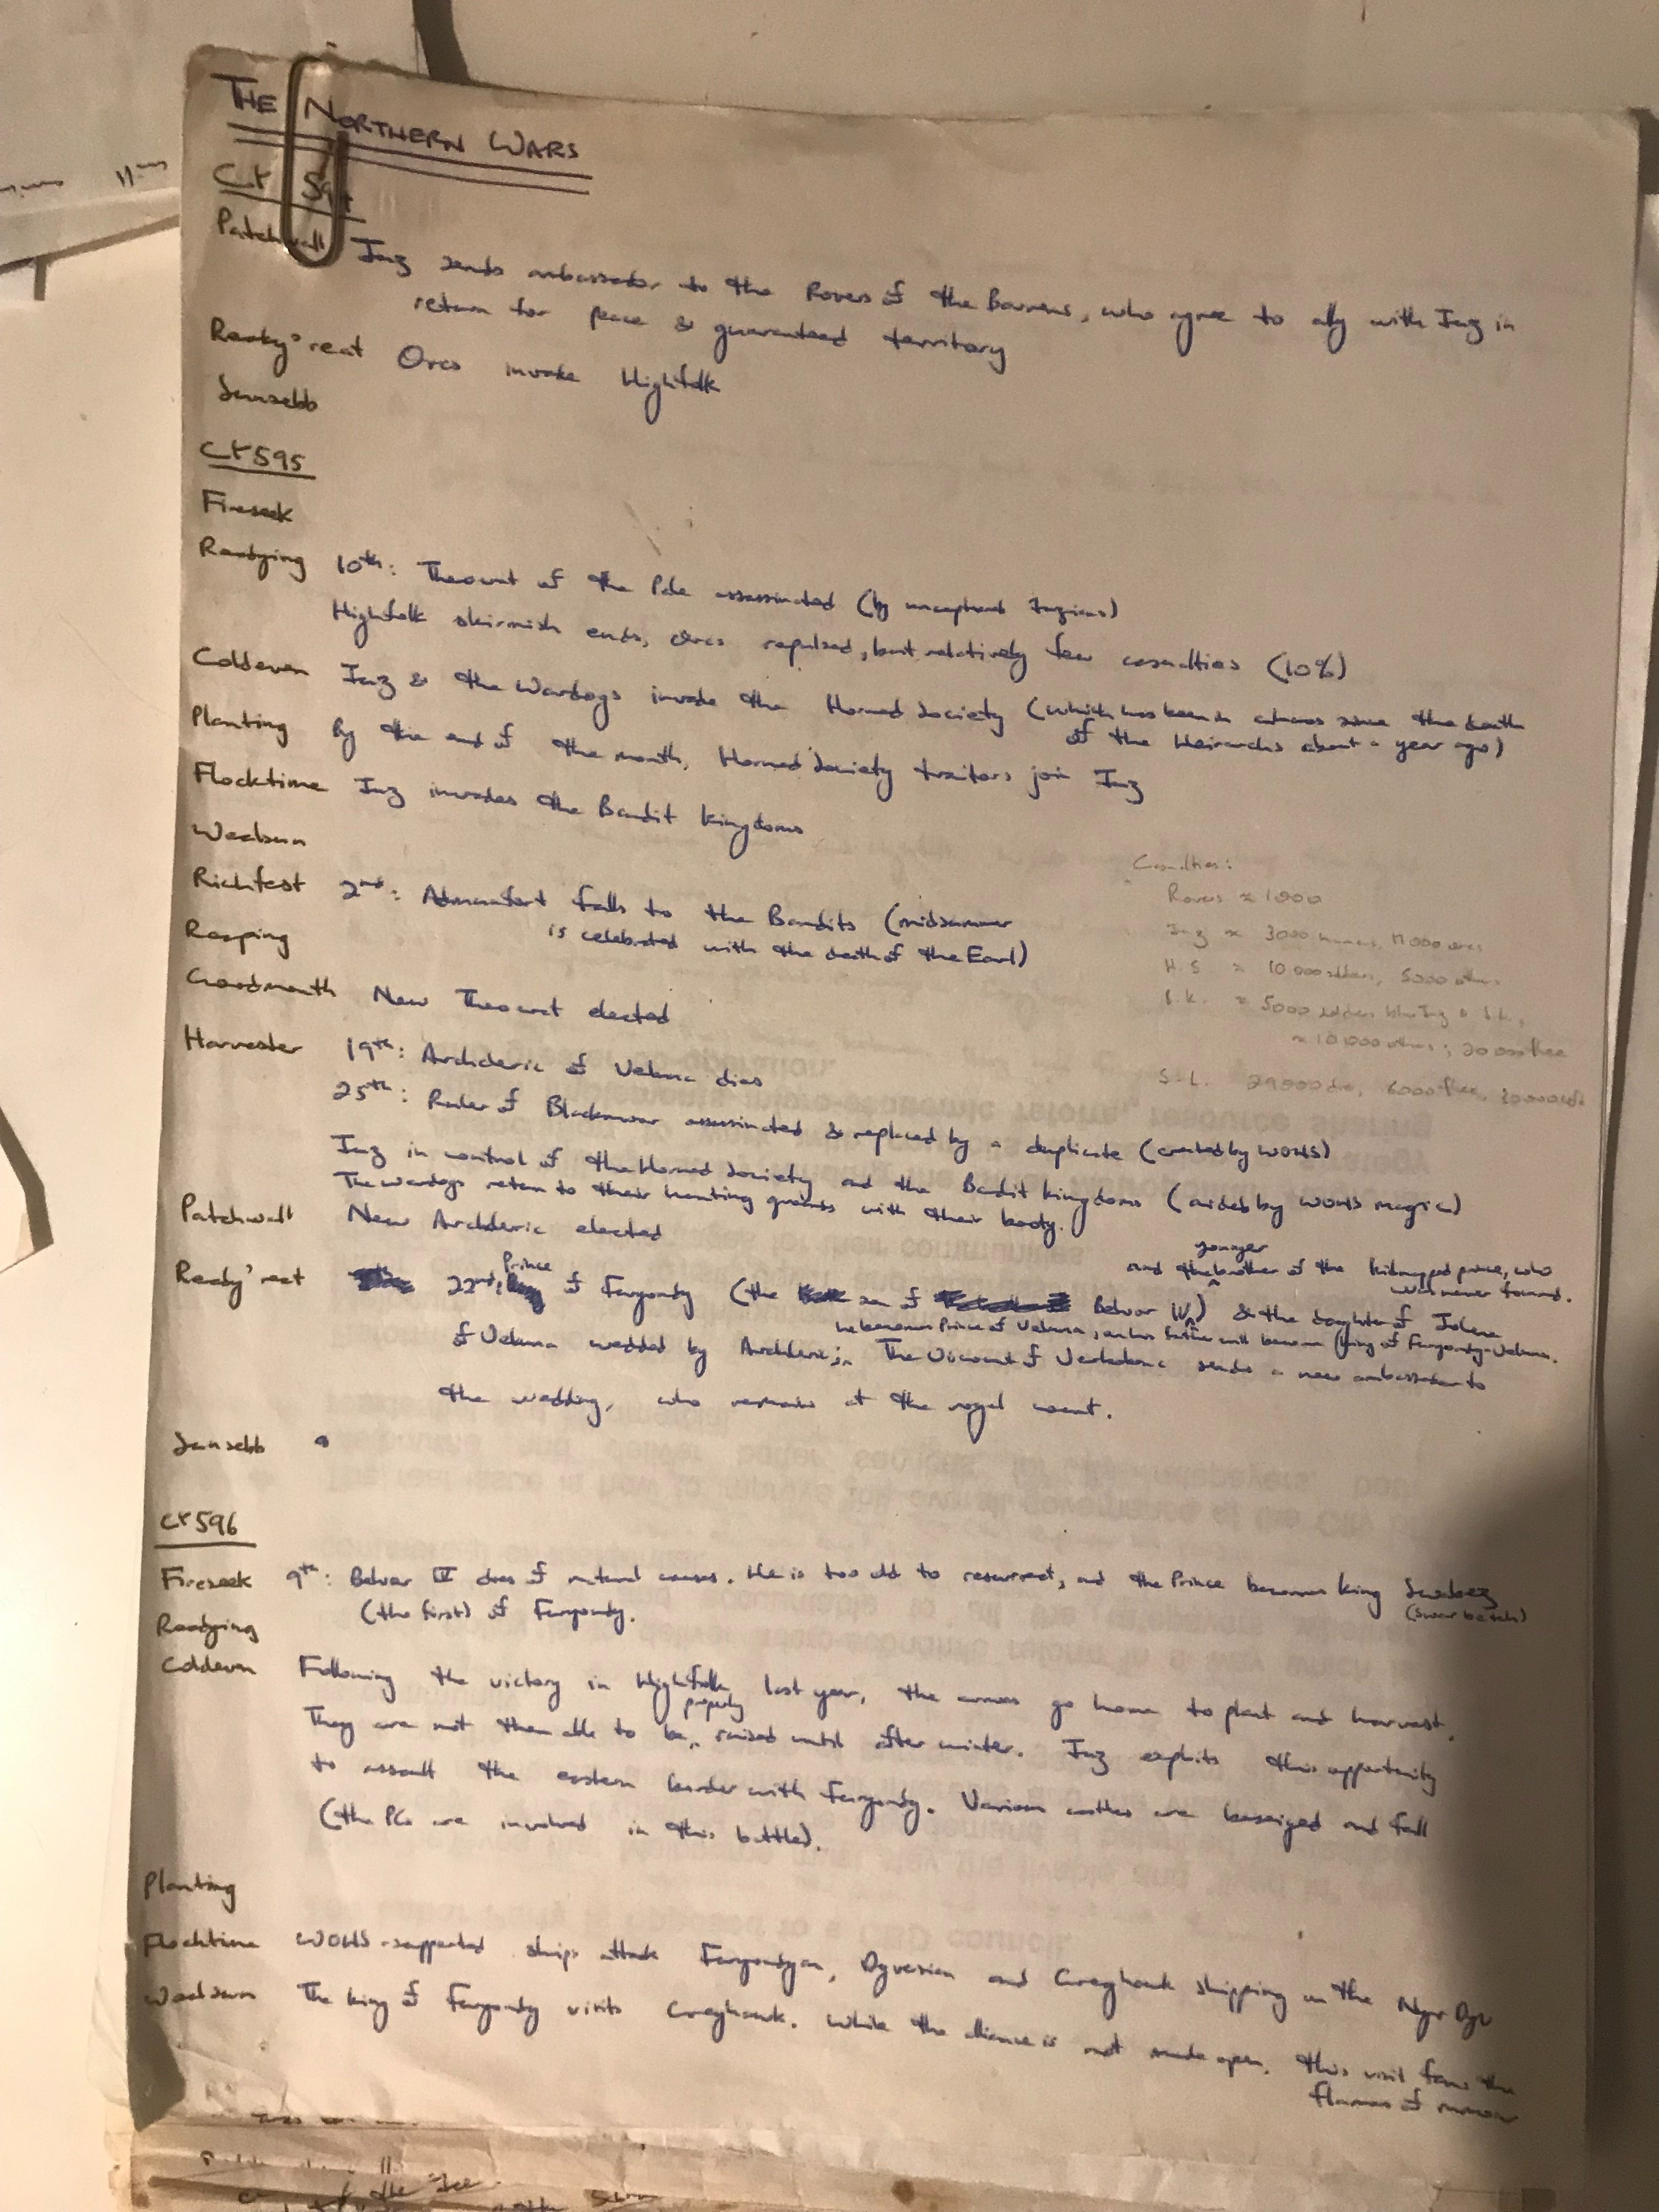 THE NORTHERN WARS
CY 594
Patchwall Iuz sends ambassador to the Rovers of the Barrens, who agree to ally with Iuz in
return for peace & guaranteed territory
Ready'reat Orcs invade Highfolk
Sunsebb
CY 595
Fireseek
Readying 10th: Theocrat of the Pale assassinated (by Iuzians)
Highfolk skirmish ends, orcs repulsed, but relatively few casualties (10%)
Coldeven Iuz & the Wardogs invade the Horned Society (which has been in chaos since the death
of the Heirarchs about a year ago)
Planting By the end of the month, Horned Society traitors join Iuz
Flocktime Iuz invades the Bandit Kingdoms
Wealsun
Casualties:
Richfest 2nd: Admundfort falls to the Bandits (midsummer
Rovers ≈ 1000
Reaping is celebrated with the death of the Earl)
Iuz ≈ 3000 humans, 17000 orcs
H.S. ≈ 10 000 soldiers, 5000 others
Goodmonth New Theocrat elected
B.K. ≈ 5000 soldiers
≈ 10 000 others; 20 000 flee
Harvester 19th: Archcleric of Veluna dies
S.L. 29500 die, 6000 flee,
25th: Ruler of Blackmoor assassinated & replaced by a duplicate (created by WOHS)
Iuz in control of the Horned Society and the Bandit Kingdoms (aided by WOHS magic)
The wardogs return to their hunting grounds with their booty.
Patchwall New Archcleric elected
younger
and the brother of the kidnapped prince, who
was never found.
Prince
Ready'reat 22nd: of Furyondy (the son of Belvor IV) & the daughter of Jolene
he becomes Prince of Veluna, as his father will become King of Furyondy-Veluna.
of Veluna wedded by Archcleric; The Viscount of Verbobonc sends a new ambassador to
the wedding, who remains at the royal court.
Sunsebb
CY 596
Fireseek 9th: Belvor IV dies of natural causes. He is too old to resurrect, and the Prince becomes King
(the first) of Furyondy.
Readying
Coldeven Following the victory in Highfolk last year, the armies go home to plant and harvest.
properly
They are not then able to be raised until after winter. Iuz exploits this opportunity
to assault the eastern border with Furyondy. Various castles are beseiged and fall
(the PCs are involved in this battle).
Planting
Flocktime WOHS-supported ships attack Furyondyan, Dyversian and Greyhawk shipping on the Nyr Dyv
Wealsun The King of Furyondy visits Greyhawk. While the alliance is not made open, this visit fans the
flames of rumour